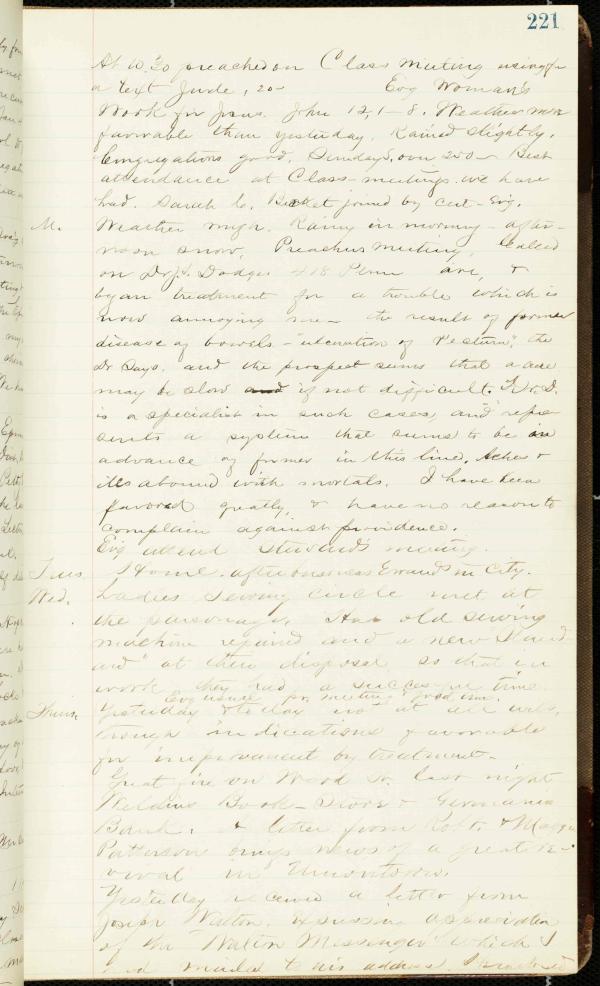 221
At 10.30 preached on Class meeting using for
a text Jude, 20 - Evg Woman's
Work for Jesus. John 12, 1-8. Weather more
favorable than yesterday. Rained slightly.
Congregations good. Sundays, over 250 - Best
attendance at Class-meetings we have
had. Sarah C. joined by cert - Evg.
M. Weather rough. Rainy in morning - after-
noon snow. Preachers meeting. Called
on Dr. J. Dodges 418 Penn ave, &
began treatment for a trouble which is
now annoying me - the result of former
disease of bowels - "ulceration of Rectum", the
Dr says. and the prospect seems that a cure
may be slow and if not difficult. Dr. D.
is a specialist in such cases, and repre-
sents a system that seems to be in
advance of former in this line. Aches &
ills abound with mortals. I have been
favored greatly, & have no reason to
complain against providence.
Evg attend Steward's meeting.
Tues Home. after business Errands in city.
Wed. Ladies Sewing circle met at
the parsonage. Had old sewing
machine repaired and a new "Stand-
ard" at their disposal so that in
work they had a successful time.
Evg usual pr. meeting good
Thurs. Yesterday & to day not at all well,
though indications favorable
for improvement by treatment.
Great fire on Wood St. last night
Weldins Book-Store & Germania
Bank. A letter from Robt. & Maggie
Patterson brings news of a great re-
vival in Uniontown.
Yesterday received a letter from
Joseph Walton, expressing appreciation
of the "Walton Messenger" which I
had mailed to his address. I